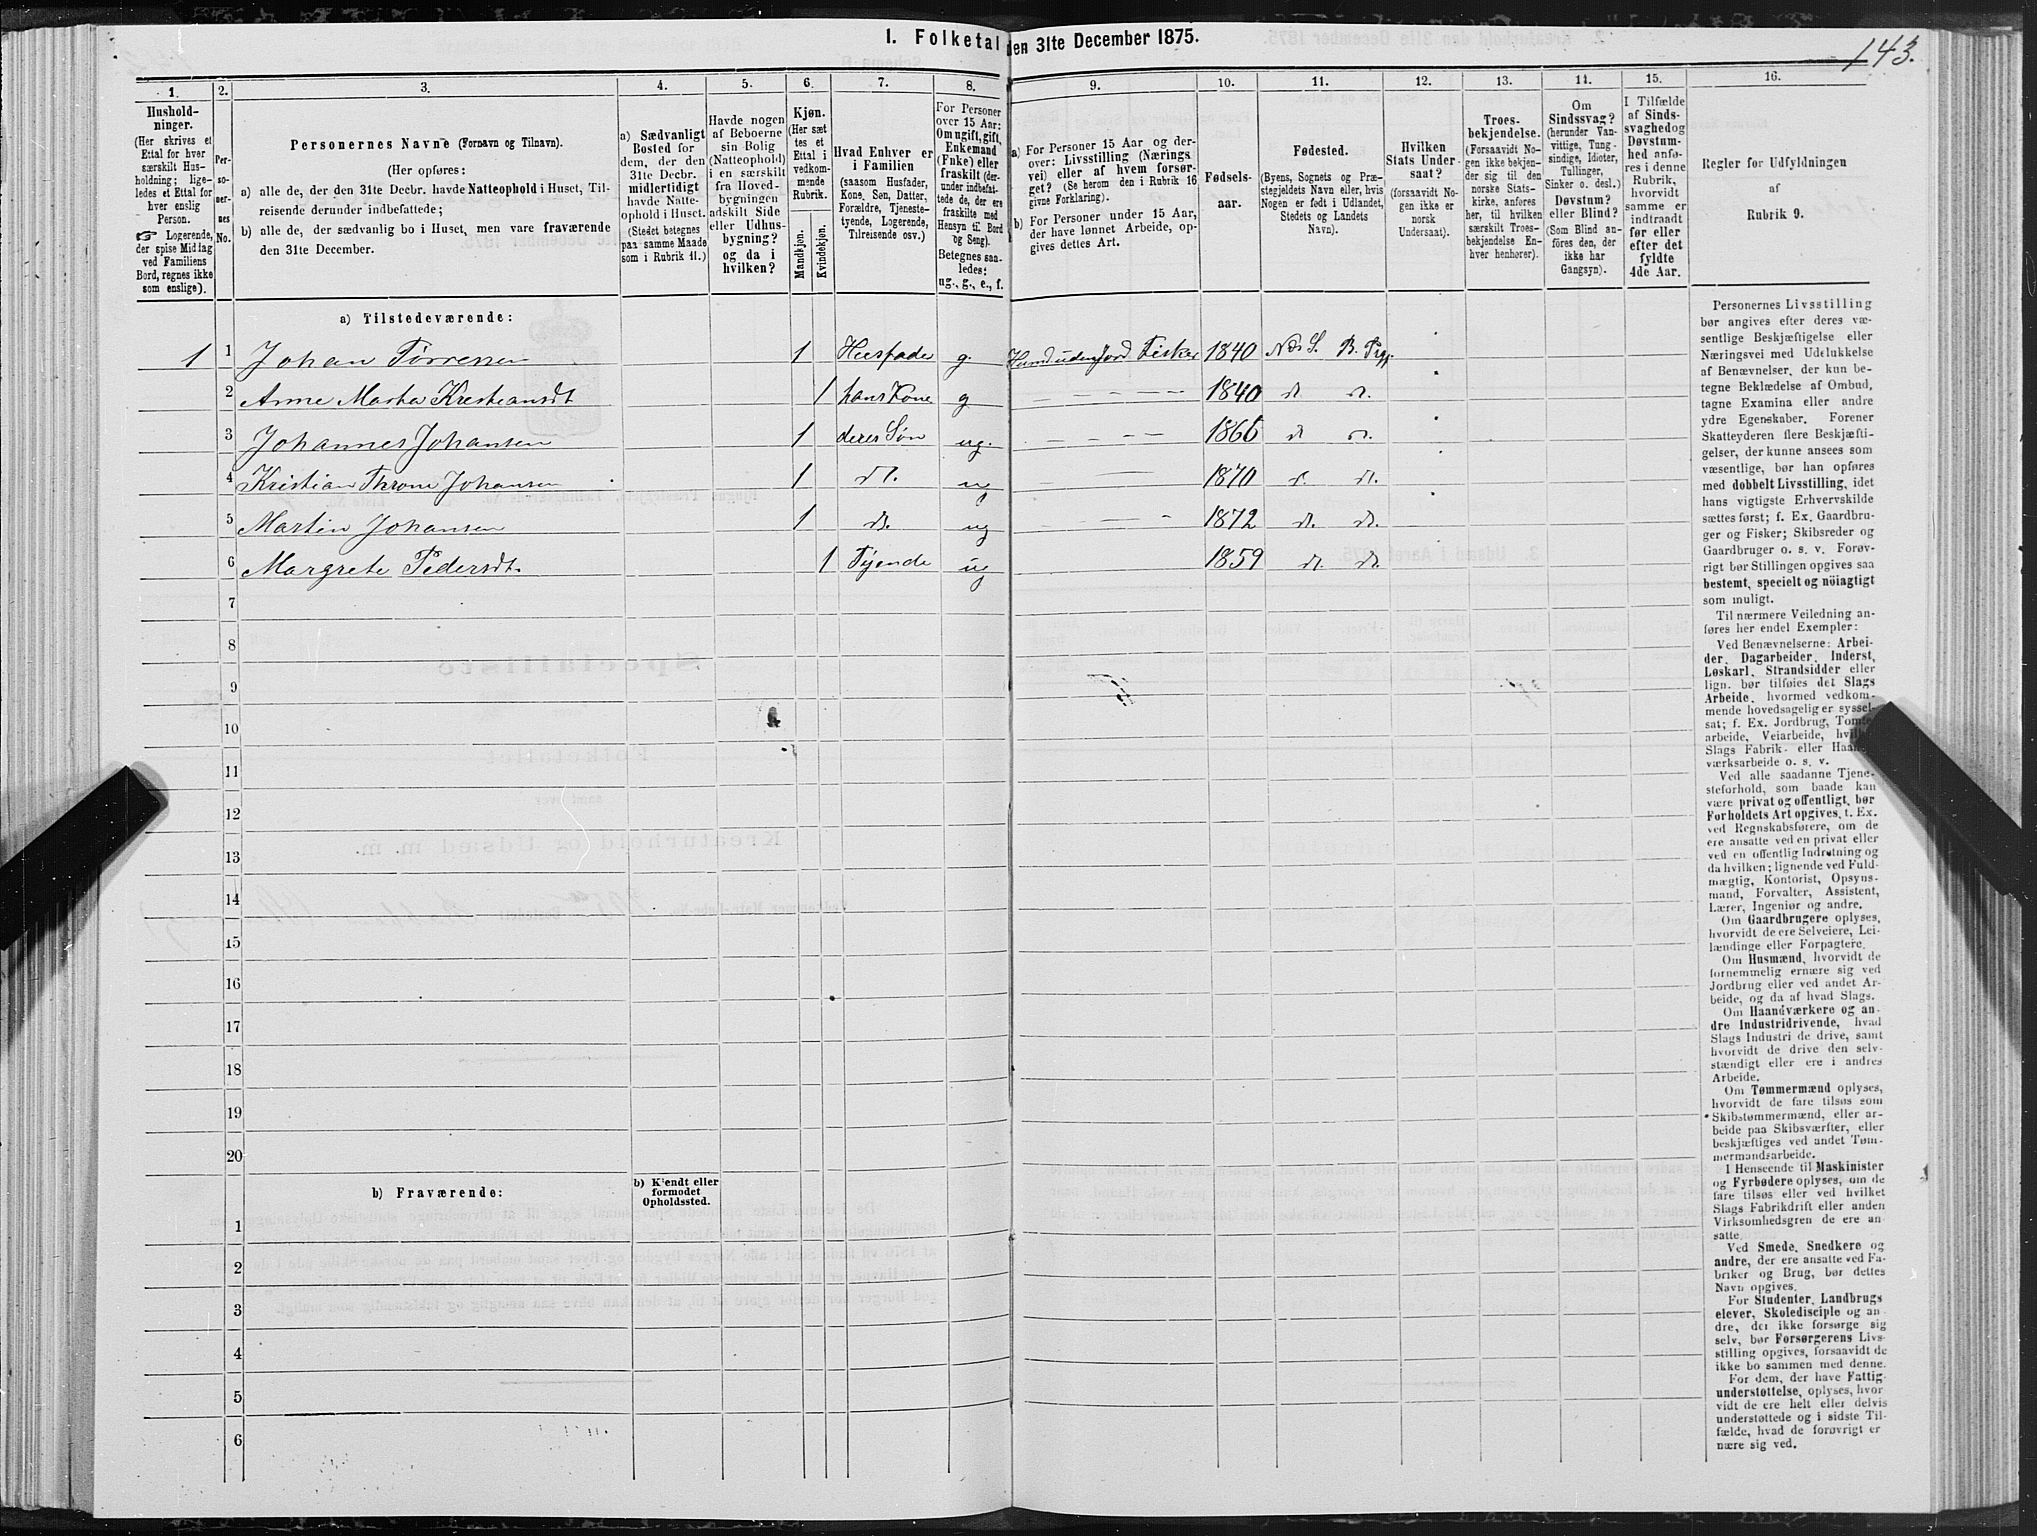 1. Folketal den 31te December 1875.
143.
1. 2. 3. 4. 5. 6. 7. 8. 9. 10. 11. 12. 13. 14. 15. 16.
Hushold-
ninger.
(Her skrives et
Ettal for hver
særskilt Hus-
holdning; lige-
ledes et Ettal for
hver enslig
Person.
☞ Logerende,
der spise Middag
ved Familiens
Bord, regnes ikke
som enslige).
Per-
so-
ner-
nes
No.
Personernes Navne (Fornavn og Tilnavn).
(Her opføres:
a) alle de, der den 31te Decbr. havde Natteophold i Huset, Til-
reisende derunder indbefattede;
b) alle de, der sædvanlig bo i Huset, men vare fraværende
den 31te December.
a) Sædvanligt
Bosted for
dem, der den
31te Decbr.
midlertidigt
havde Natte-
ophold i Huset.
(Stedet betegnes
paa samme Maade
som i Rubrik 11.)
Havde nogen
af Beboerne
sin Bolig
(Natteophold)
i en særskilt
fra Hoved-
bygningen
adskilt Side
eller Udhus-
bygning?
og da i
hvilken?
Kjøn.
(Her sæt
tes et
Ettal i
vedkom-
mende
Rubrik.
Mandkjøn.
Kvindekjøn.
Hvad Enhver er
i Familien
(saasom Husfader,
Kone, Søn, Datter,
Forældre, Tjeneste-
tyende, Logerende,
Tilreisende osv.)
For Personer
over 15 Aar:
Om ugift, gift,
Enkemand
(Enke) eller
fraskilt (der-
under indbefat-
tede de, der ere
fraskilte med
Hensyn til Bord
og Seng).
Betegnes saa-
ledes:
ug., g., e., f.
a) For Personer 15 Aar og der-
over: Livsstilling (Nærings
vei) eller af hvem forsør-
get? (Se herom den i Rubrik 16
givne Forklaring).
b) For Personer under 15 Aar,
der have lønnet Arbeide, op-
gives dettes Art.
Fødsels-
aar.
Fødested.
(Byens, Sognets og Præ-
stegjeldets Navn eller, hvis
Nogen er født i Udlandet,
Stedets og Landets
Navn).
Hvilken
Stats Under-
saat?
(forsaavidt No-
gen ikke er
norsk
Undersaat).
Troes-
bekjendelse.
(Forsaavidt No-
gen ikke bekjen-
der sig til den
norske Stats-
kirke, anføres
her, til hvilken
særskilt Troes-
bekjendelse En-
hver henhører).
Om
Sindssvag?
(herunder Van-
vittige, Tung-
sindige, Idioter,
Tullinger,
Sinker o. desl.)
Døvstum?
eller Blind?
(Som Blind an-
føres den, der
ikke har
Gangsyn).
I Tilfælde
af Sinds-
svaghed og
Døvstum-
hed anfø-
res i denne
Rubrik,
hvorvidt
samme er
indtraadt
før eller
efter det
fyldte
4de Aar.
Regler før Udfyldningen
af
Rubrik 9.
a) Tilstedeværende:
1 1 Johan Tørresen 1 Husfader g. Fisker 1840 B. Prgj.
2 Anne Marta Kristiansdt 1 hans Kone g 1840 dt. dt.
3 Johannes Johansen 1 deres Søn ug. dt. dt.
4 Kristian Throne Johansen 1 dt. ug 1870 dt. dt.
5 Martin Johansen 1 dt. ug 1872 dt. dt.
6 Margrete Pedersdt. 1 Tjende ug 1859 dt. dt.
7
8
9
10
11
12
13
14
15
16
17
18
19
20
b) Fraværende:
b) Kjendt eller
formodet
Opholdssted.
1
2
3
4
5
6
Personernes Livsstilling
bør angives efter deres væ-
sentlige Beskjæftigelse eller
Næringsvei med Udelukkelse
af Benævnelser, der kun be-
tegne Beklædelse af Ombud,
tagne Examina eller andre
ydre Egenskaber. Forener
Skatteyderen flere Beskjæfti-
gelser, der kunne ansees som
væsentlige, bør han opføres
med dobbelt Livsstilling, idet
hans vigtigste Erhvervskilde
sættes først; f. Ex. Gaardbru-
ger og Fisker; Skibsreder og
Gaardbruger o. s. v. Forøv-
rigt bør Stillingen opgives saa
bestemt, specielt og nöiagtigt
som muligt.
Til nærmere Veiledning an-
føres her endel Exempler:
Ved Benævnelserne: Arbei-
der, Dagarbeider, Inderst,
Løskarl, Strandsidder eller
lign. bør tilføies det Slags
Arbeide, hvormed vedkom-
mende hovedsagelig er syssel-
sat; f. Ex. Jordbrug, Tomte-
arbeide, Veiarbeide, hvilket
Slags Fabrik- eller Haand-
værksarbeide o. s. v.
Ved alle saadanne Tjene-
steforhold, som baade kan
være privat og offentligt, bør
Forholdets Art opgives, t. Ex.
ved Regnskabsførere, om de
ere ansatte ved en privat eller
ved en offentlig Indretning og
da hvilken; lignende ved Fuld-
mægtig, Kontorist, Opsyns-
mand, Forvalter, Assistent,
Lærer, Ingeniør og andre.
Om Gaardbrugere oplyses,
hvorvidt de ere Selveiere, Lei-
lændinge eller Forpagtere.
Om Husmænd, hvorvidt de
fornemmelig ernære sig ved
Jordbrug eller ved andet Ar-
beide, og da af hvad Slags.
Om Haandværkere og an-
dre Industridrivende, hvad
Slags Industri de drive, samt
hvorvidt de drive den selv-
stændigt eller ere i andres
Arbeide.
Om Tømmermænd oplyses,
hvorvidt de fare tilsøs som
Skibstømmermænd, eller ar-
beide paa Skibsværfter, eller
beskjæftiges ved andet Tøm-
mermandsarbeide.
I Henseende til Maskinister
og Fyrbødere oplyses, om de
fare tilsøs eller ved hvilket
Slags Fabrikdrift eller anden
Virksomhedsgren de ere an-
satte.
Ved Smede, Snedkere og
andre, der ere ansatte ved Fa-
briker og Brug, bør dettes
Navn opgives.
For Studenter, Landbrugs
elever, Skoledisciple og an-
dre, der ikke forsørge sig
selv, bør Forsørgerens Livs-
stilling opgives, forsaavidt de
ikke bo sammen med denne.
For dem, der have Fattig-
understøttelse, oplyses, hvor
vidt de ere helt eller delvis
understøttede og i sidste Til-
fælde, hvad de forøvrigt er
nære sig ved.